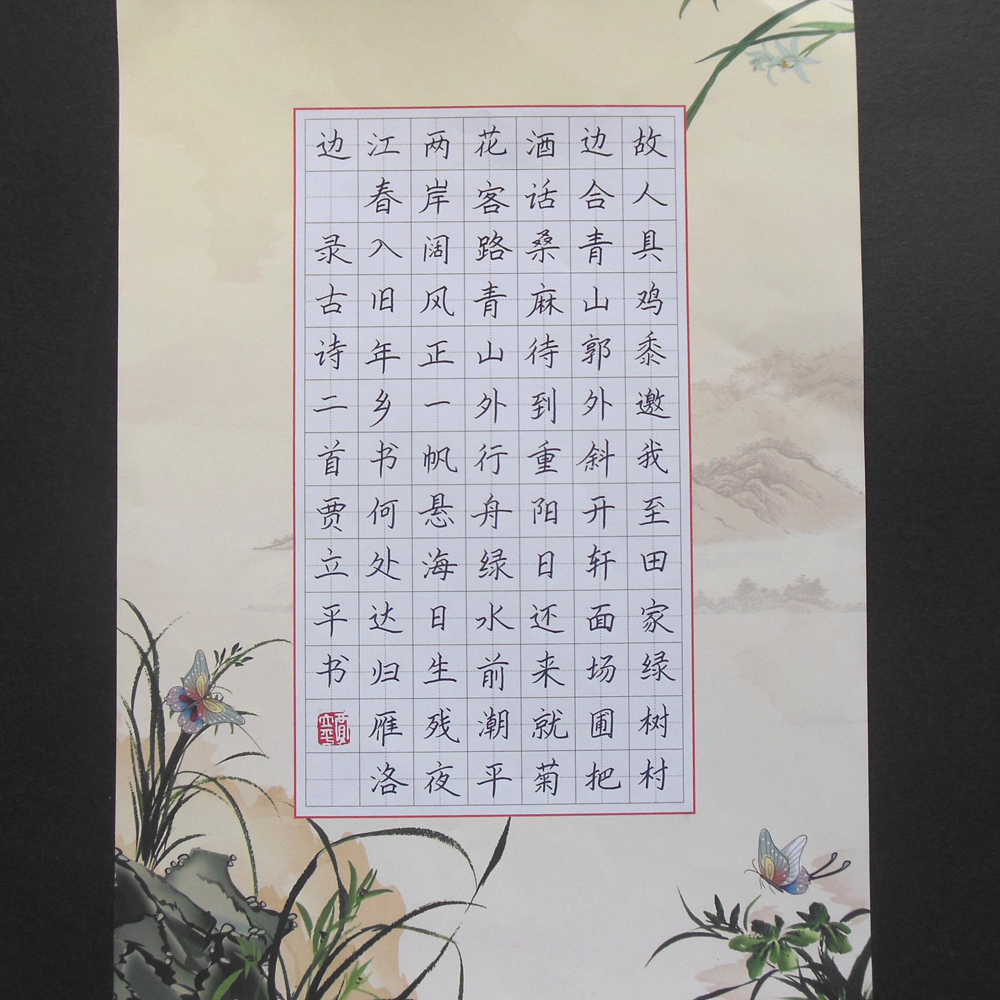 故人具鸡黍邀我至田家绿树村
边合青山郭外斜开轩面场圃把
酒话桑麻待到重阳日还来就菊
花客路青山外行舟绿水前潮平
两岸阔风正一帆悬海日生残夜
江春入旧年乡书何处达归雁洛
边 录古诗二首贾立平书
贾立平